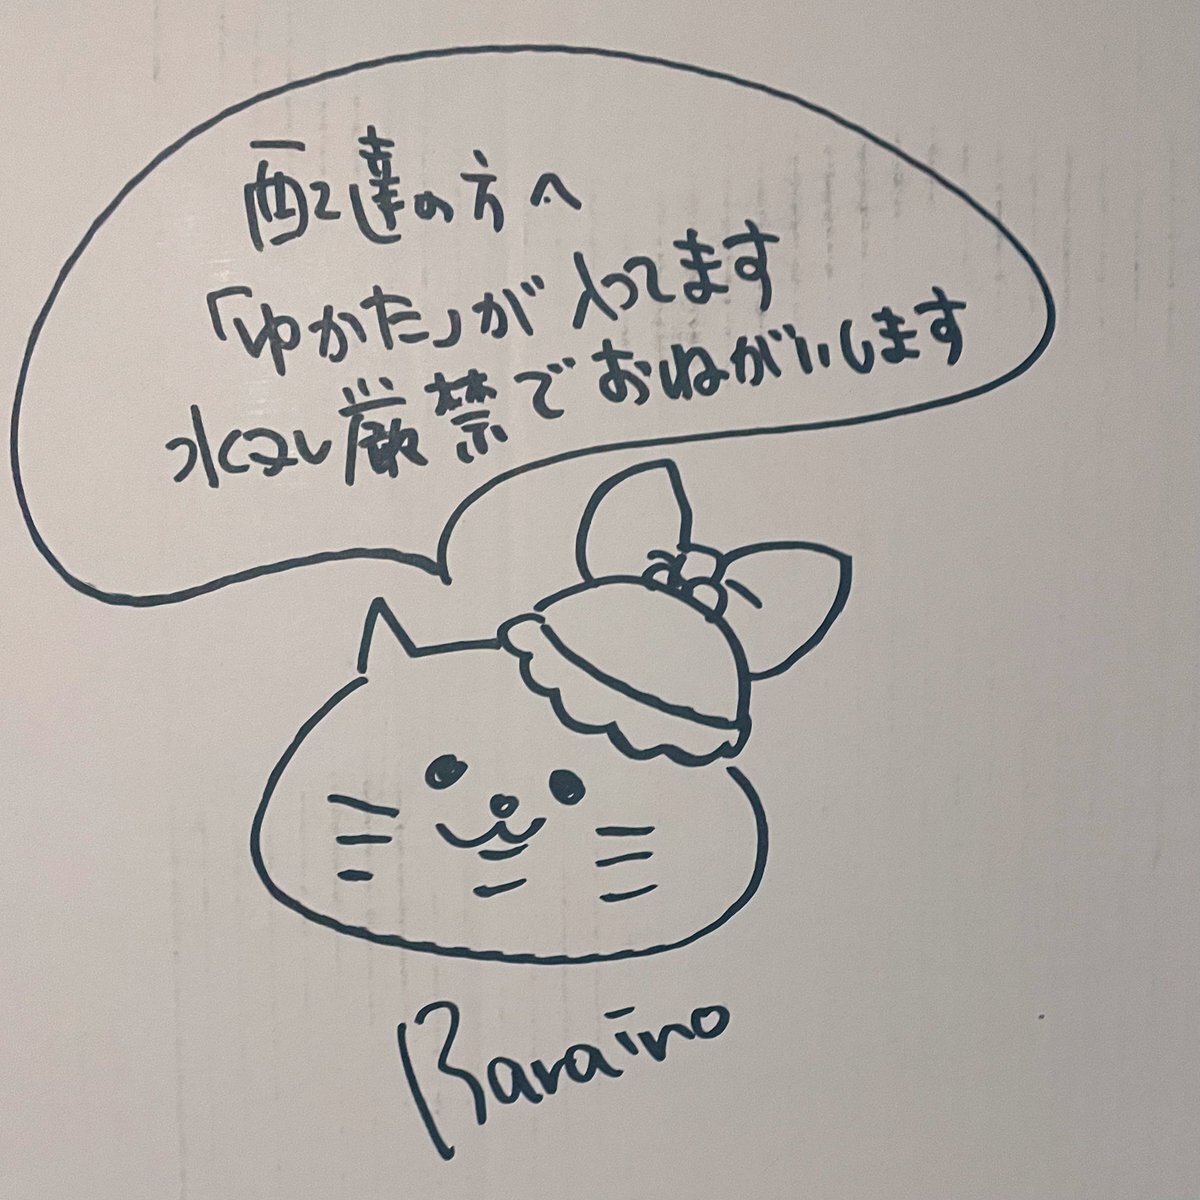 配達の方へ
「ゆかた」が入ってます
水くはし厳禁でおねがいします
Baraino